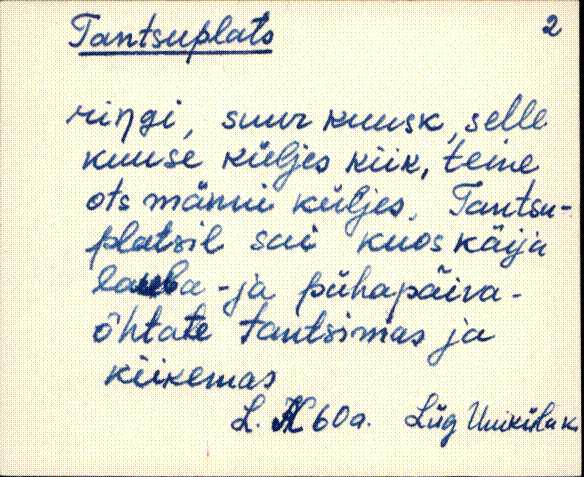 Tantsuplats 2
ringi, suur kuusk, selle
kuuse küljes kiik, teine
ots männi küljes. Tantsu-
platsil sai kuos käija
lauba-ja pühapäiva-
õhtate tantsimas ja
kiikemas
L. 60a. Lüg Uuiküla k.